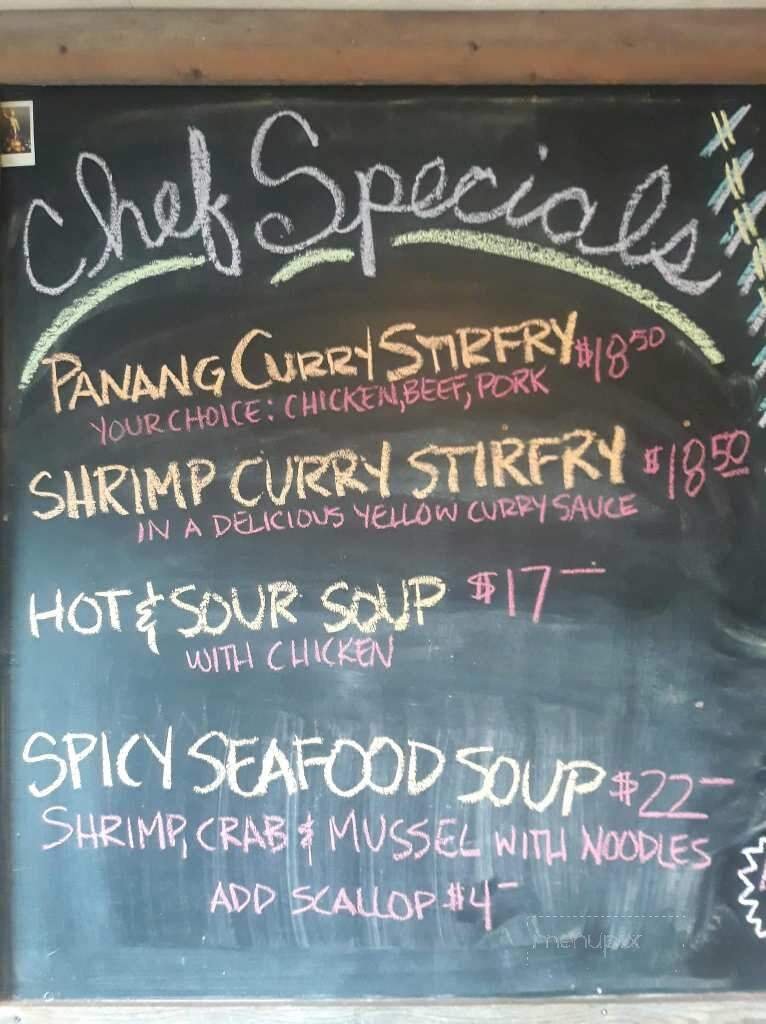 Chef Specials
PANANG CURRY STIRFRY $18.50
YOUR CHOICE: CHICKEN, BEEF, PORK
SHRIMP CURRY STIRFRY $18.50
IN A DELICIOUS YELLOW CURRY SAUCE
HOT & SOUR SOUP $17—
WITH CHICKEN
SPICY SEAFOOD SOUP $22—
SHRIMP, CRAB & MUSSEL WITH NOODLES
ADD SCALLOP $4—
menupix